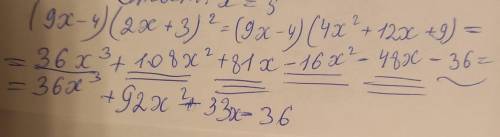 x = 5
(9x-4)(2x+3)²=(9x-4)(4x²+12x+9)=
=36x³+108x²+81x-16x²-48x-36=
=36x³+92x²+33x-36